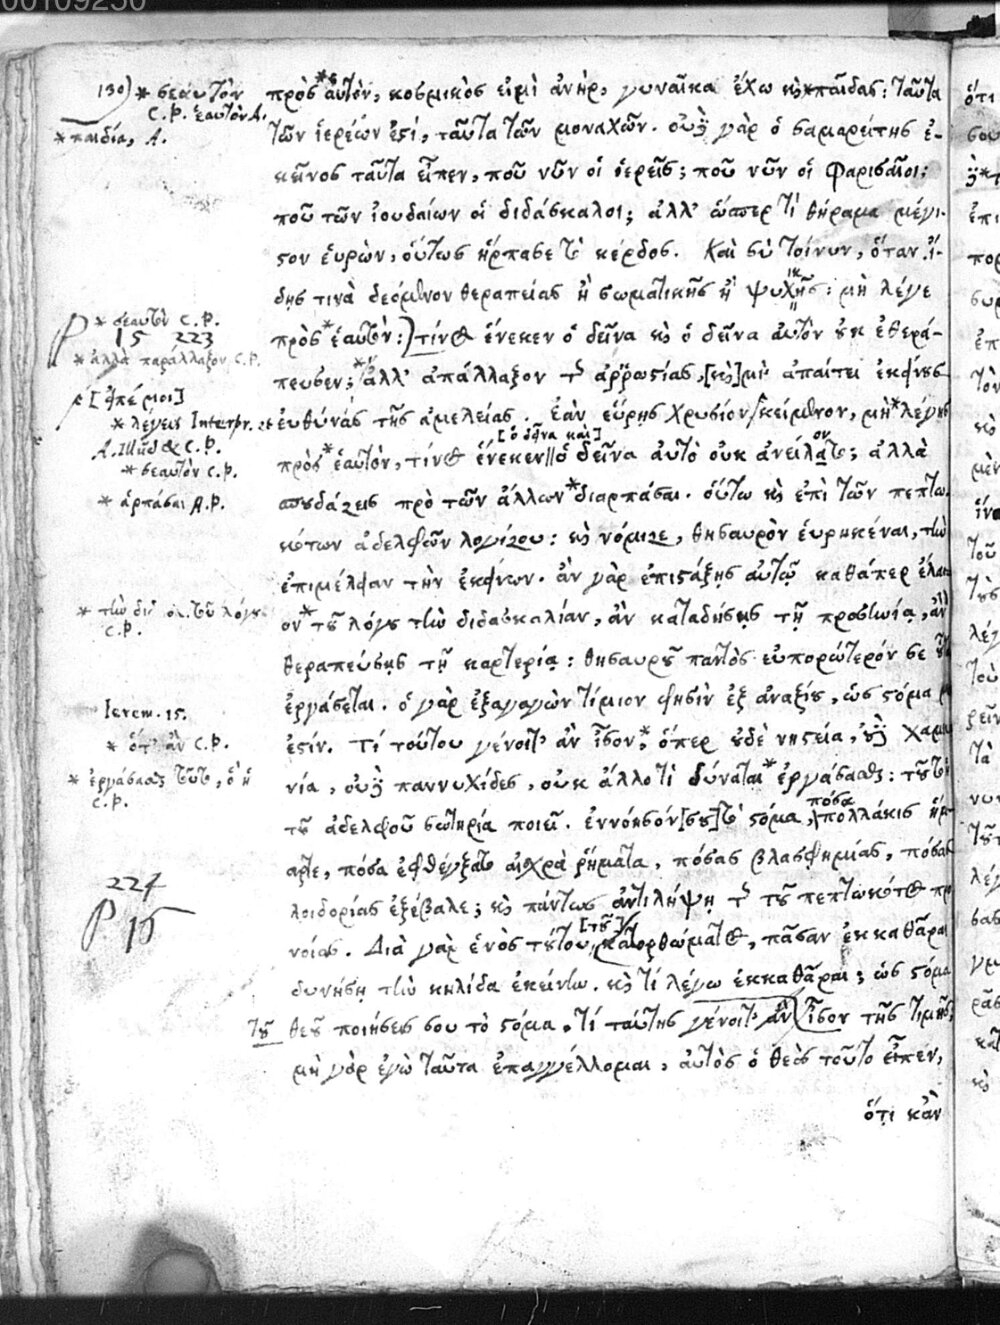 00109250
130) * σεαυτὸν πρὸς *ἑαυτὸν, κοσμικός εἰμι ἀνήρ, γυναῖκα ἔχω καὶ *παῖδας: ταῦτα
C.P. ἑαυτὸν A.
* παιδία, A. τῶν ἱερέων ἐστί, ταῦτα τῶν μοναχῶν. οὐδὲ γὰρ ὁ σαμαρείτης ἐ-
κεῖνος ταῦτα εἶπεν, ποῦ νῦν οἱ ἱερεῖς; ποῦ νῦν οἱ Φαρισαῖοι;
ποῦ τῶν ἰουδαίων οἱ διδάσκαλοι; ἀλλ' ὥσπερ τὶ θήραμα μέγι-
στον εὑρὼν, οὕτως ἥρπασε τὸ κέρδος. Καὶ σὺ τοίνυν, ὅταν ἴ-
δῃς τινὰ δεόμενον θεραπείας ἢ σωματικῆς ἢ ψυχικῆς: μὴ λέγε
* σεαυτὸν C.P. πρὸς *ἑαυτὸν:) τίνος ἕνεκεν ὁ δεῖνα καὶ ὁ δεῖνα αὐτὸν οὐκ ἐθερά-
P 15 223
* ἀλλὰ παράλλαξον C.P. πευσεν; *ἀλλ' ἀπάλλαξον τῆς ἀῤῥωστίας, [καὶ] μὴ ἀπαίτει ἐκείνους
* λέγεις Interpr. et εὐθύνας τῆς ἀμελείας. ἐὰν εὕρῃς χρυσίον κείμενον, μὴ *λέγῃς
[ὁ δεῖνα καὶ]
* σεαυτὸν C.P. πρὸς *ἑαυτὸν, τίνος ἕνεκεν ὁ δεῖνα αὐτὸ οὐκ ἀνείλατο; ἀλλὰ
* ἁρπάσαι A.P. σπουδάζεις πρὸ τῶν ἄλλων *διαρπάσαι. οὕτω καὶ ἐπὶ τῶν πεπτω-
κότων ἀδελφῶν λογίζου: καὶ νόμιζε, θησαυρὸν εὑρηκέναι, τὴν
ἐπιμέλειαν τὴν ἐκείνων. ἂν γὰρ ἐπιστάξῃς αὐτῷ καθάπερ ἔλαι-
* τὴν διὰ τοῦ λόγου C.P. ον *τοῦ λόγου τὴν διδασκαλίαν, ἂν καταδήσῃς τῇ προσηνίᾳ, ἂν
θεραπεύσῃς τῇ καρτερίᾳ: θησαυροῦ παντὸς εὐπορώτερόν σε
Ierem. 15. ἐργάσεται. ὁ γὰρ ἐξαγαγὼν τίμιον φησὶν ἐξ ἀναξίου, ὡς στόμα
* ὅτ' ἂν C.P. ἐστίν. Τί τούτου γένοιτ' ἂν ἶσον, *ὅπερ οὐδὲ νηστεία, οὐδὲ χαμευ
* ἐργάσασθαι τοῦτο, ὃ ἡ C.P. νία, οὐδὲ παννυχίδες, οὐκ ἄλλο τὶ δύναται *ἐργάσασθαι: τοῦτο ἡ
τοῦ ἀδελφοῦ σωτηρία ποιεῖ. ἐννόησόν [σου] τὸ στόμα, πόσα πολλάκις ἥμ-
αρτε, πόσα ἐφθέγξατο αἰσχρὰ ῥήματα, πόσας βλασφημίας, πόσας
224
P 15 λοιδορίας ἐξέβαλε; καὶ πάντως ἀντιλήψῃ τῆς τοῦ πεπτωκότος προ
νοίας. Διὰ γὰρ ἑνὸς τούτου [τοῦ] κατορθώματος, πᾶσαν ἐκκαθᾶραι
δυνήσῃ τὴν κηλίδα ἐκείνην. καὶ τί λέγω ἐκκαθᾶραι; ὡς στόμα
τοῦ θεοῦ ποιήσεις σου τὸ στόμα. τί ταύτης γένοιτ' ἂν ἶσον τῆς τιμῆς;
μὴ γὰρ ἐγὼ ταῦτα ἐπαγγέλλομαι, αὐτὸς ὁ θεὸς τοῦτο εἶπεν,
ὅτι κἂν